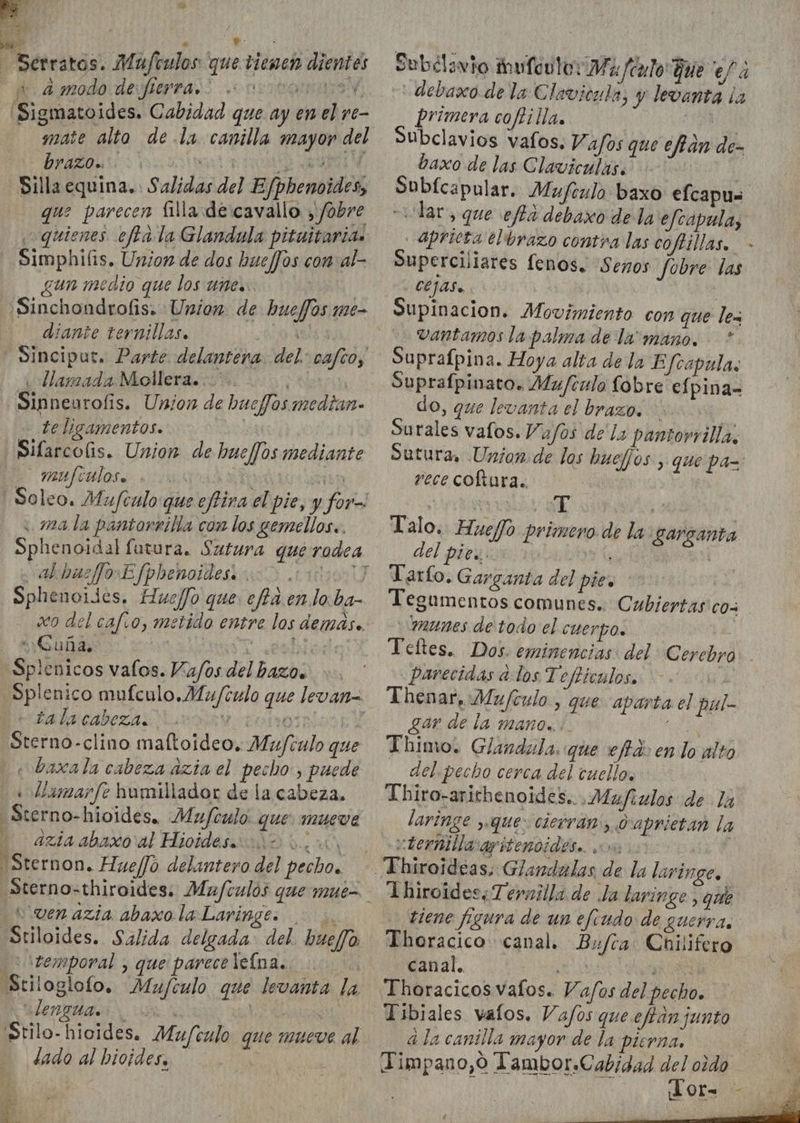 Serratos. Muſculos que tienen dientes
à modo de ſierra.
Sigmatoides. Cabidad que ay en el re-
mate alto de la canilla mayor del
brazo.
Silla equina. Salidas del Eſphenoides,
que parecen ſilla de cavallo, ſobre
quienes eſtà la Glandula pituitaria.
Simphiſis. Union de dos hueſſos con al-
gun medio que los une.
Sinchondroſis. Union de hueſſos me-
diante ternillas.
Sinciput. Parte delantera del caſco,
llamada Mollera.
Sinneuroſis. Union de hueſſos median-
te ligamentos.
Siſarcoſis. Union de hueſſos mediante
muſculos.
Soleo. Muſculo que eſtira el pie, y for-
ma la pantorrilla con los gemellos.
Sphenoidal ſutura. Sutura que rodea
al hueſſo Eſphenoides.
Sphenoides. Hueſſo que eſtà en lo ba-
xo del caſco, metido entre los demàs.
Cuña.
Splenicos vaſos. Vaſos del bazo.
Splenico muſculo. Muſculo que levan-
ta la cabeza.
Sterno-clino maſtoideo. Muſculo que
baxa la cabeza àzia el pecho, puede
llamarſe humillador de la cabeza.
Sterno-hioides. Muſculo que mueve
àzia abaxo al Hioides.
Sternon. Hueſſo delantero del pecho.
Sterno-thiroides. Muſculos que mue-
ven àzia abaxo la Laringe.
Stiloides. Salida delgada del hueſſo
temporal, que parece leſna.
Stilogloſo. Muſculo que levanta la
lengua.
Stilo-hioides. Muſculo que mueve al
lado al hioides.
Subclavio muſculo. Muſculo que eſtà
debaxo de la Clavicula, y levanta la
primera coſtilla.
Subclavios vaſos. Vaſos que eſtàn de-
baxo de las Claviculas.
Subſcapular. Muſculo baxo eſcapu-
lar, que eſtà debaxo de la eſcapula,
aprieta el brazo contra las coſtillas.
Superciliares ſenos. Senos ſobre las
cejas.
Supinacion. Movimiento con que le-
vantamos la palma de la mano.
Supraſpina. Hoya alta de la Eſcapula.
Supraſpinato. Muſculo ſobre eſpina-
do, que levanta el brazo.
Surales vaſos. Vaſos de la pantorrilla.
Sutura. Union de los hueſſos, que pa-
rece coſtura.
T
Talo. Hueſſo primero de la garganta
del pie.
Tarſo. Garganta del pie.
Tegumentos comunes. Cubiertas co-
munes de todo el cuerpo.
Teſtes. Dos eminencias del Cerebro
parecidas à los Teſticulos.
Thenar. Muſculo, que aparta el pul-
gar de la mano.
Thimo. Glandula que eſtà en lo alto
del pecho cerca del cuello.
Thiro-arithenoides. Muſculos de la
laringe, que cierran, ò aprietan la
ternilla aritenoides.
Thiroideas. Glandulas de la laringe.
Thiroides. Ternilla de la laringe, que
tiene figura de un eſcudo de guerra.
Thoracico canal. Buſca Chilifero
canal.
Thoracicos vaſos. Vaſos del pecho.
Tibiales vaſos. Vaſos que eſtàn junto
à la canilla mayor de la pierna.
Timpano, ò Tambor. Cabidad del oìdo
Tor-